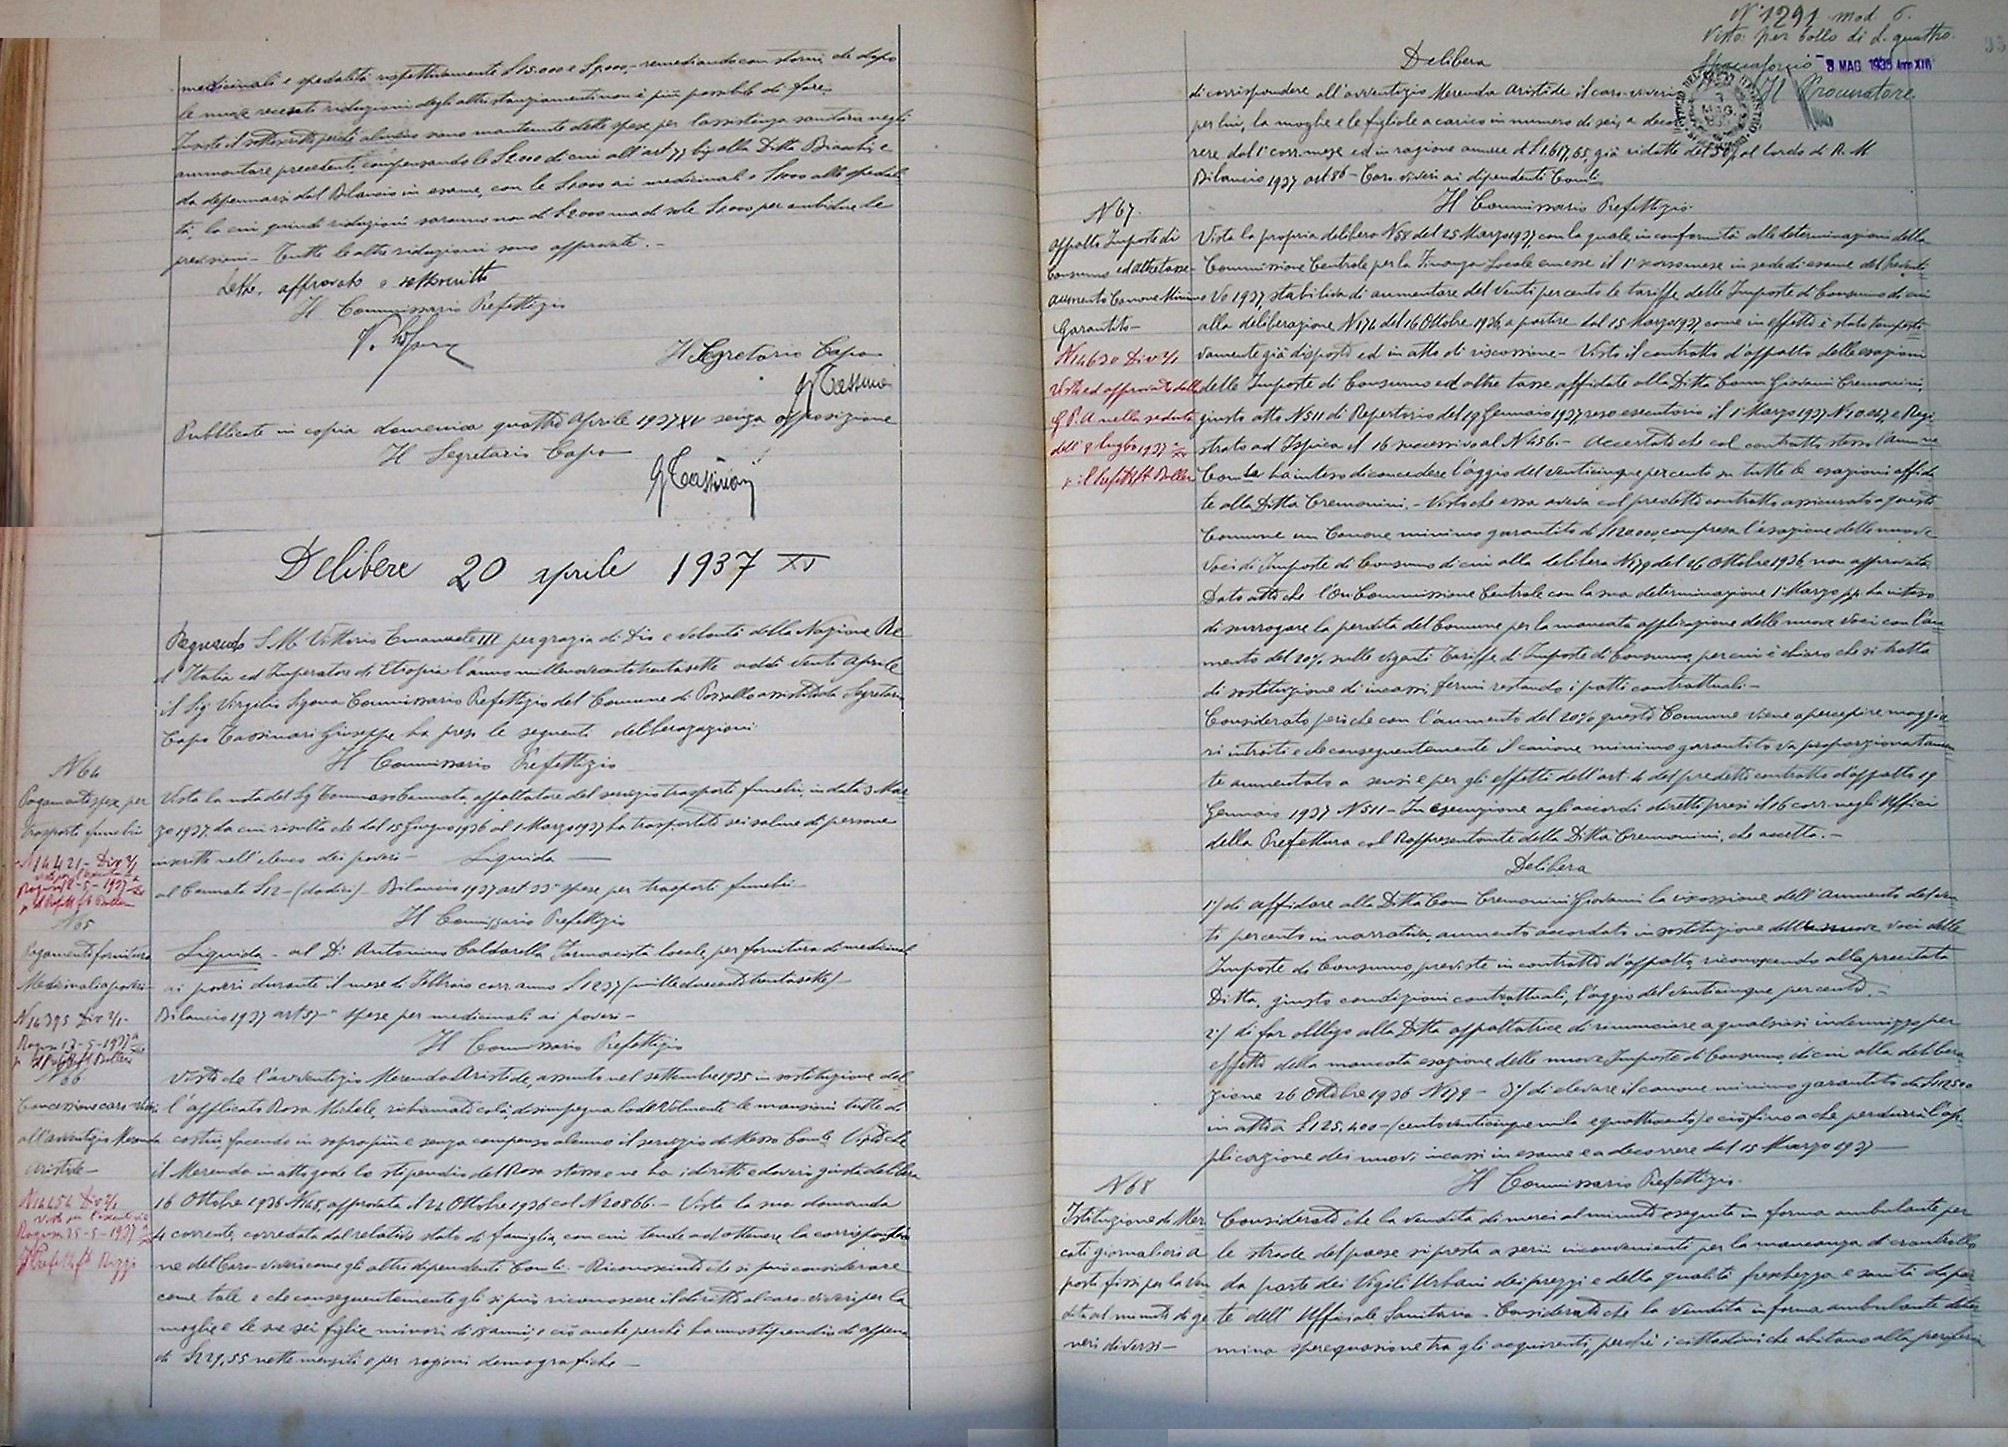 medicinali e spedalità rispettivamente £ 15.000 e £ 9.000, remediando con storni, che dopo
le nuove recenti riduzioni degli altri stanziamenti non è più possibile di fare.
sano mantenute dette spese per l'assistenza sanitaria negli
ammontare precedenti, compensando le £ 2000 di cui all'art 77 bis alla Ditta Bianchi e
da depennarsi dal Bilancio in esame, con le £ 1000 ai medicinali e £ 1000 alle spedali=
tà, la cui quindi riduzioni saranno non di £ 2000 ma di sole £ 1000 per ambedue le
previsioni - Tutte le altre riduzioni sono approvate. -
Letto, approvato e sottoscritto
Il Commissario Prefettizio
Il Segretario Capo
G Tassinari
Pubblicate in copia domenica quattro Aprile 1937 XV senza opposizione
Il Segretario Capo
G Tassinari
Delibere 20 aprile 1937 XV
Regnando S. M. Vittorio Emanuele III per grazia di Dio e volontà della Nazione Re
d'Italia ed Imperatore di Etiopia l'anno millenovecentotrentasette addì venti Aprile
il Sig. Virgilio Sgona Commissario Prefettizio del Comune di Pozzallo assistito da Segretario
Capo Tassinari Giuseppe ha preso le seguenti deliberazioni
N 64
Pagamento spese per
trasporti funebri
N 14421 - Div 2/1
Ragusa 12-5-1937
Il Commissario Prefettizio
Vista la nota del Sig Tommaso Cannata appaltatore del servizio trasporti funebri, in data 3 Mar=
zo 1937, da cui risulta che dal 15 Giugno 1936 al 1 Marzo 1937 ha trasportato sei salme di persone
inscritte nell'elenco dei poveri - Liquida -
al Cannata £ 12 - (dodici) - Bilancio 1937 art 33 - spese per trasporti funebri -
N 65
Pagamento fornitura
Medicinali a poveri -
N 14395 Div 2/1 -
Ragusa 13-5-1937
Il Commissario Prefettizio
Liquida - al Dr Antonino Caldarella Farmacista locale, per fornitura di medicinali
ai poveri durante il mese di Febbraio corr. anno £ 1237 (milleduecentotrentasette) -
Bilancio 1937 art 37 - spese per medicinali ai poveri -
N 66
Concessione caro-viveri
all'avventizio Merenda
Aristide -
N 14454 Div 2/1
Ragusa 25-5-1937
Il Commissario Prefettizio
Visto che l'avventizio Merenda Aristide, assunto nel settembre 1935 in sostituzione del=
l'applicato Rosa Michele, richiamato colà, disimpegna lodevolmente le mansioni tutte di
costui, facendo in soprappiù e senza compenso alcuno il servizio di Messo Comle Visto che
il Merenda in atto gode lo stipendio del Rosa stesso e ne ha i diritti e doveri giusta delibera
16 Ottobre 1936 N 168, approvata il 24 Ottobre 1936 col N 20866 - Vista la sua domanda
4 corrente, corredata dal relativo stato di famiglia, con cui tende ad ottenere la corrispontio=
ne del Caro-viveri come gli altri dipendenti Comli - Riconosciuto che si può considerare
come tale e che conseguentemente gli si può riconoscere il diritto al caro-viveri per la
moglie e le sue sei figlie minori di 18 anni, e ciò anche perchè ha uno stipendio di appena
di £ 429,55 nette mensili e per ragioni demografiche -
N° 1291 mod. 6.
Visto: per bollo di L. quattro.
8 MAG. 1935 Anno XIII
Il Procuratore
Delibera
di corrispondere all'avventizio Merenda Aristide il caro-viveri
per lui, la moglie e le figliole a carico in numero di sei, a decor
rere dal 1° corr. mese ed in ragione annue di £ 1.617,65, già ridotte del 5% al lordo di R. M
Bilancio 1937 art 86 - Caro-viveri ai dipendenti Comli
N 67.
Appalto Imposte di
Consumo ed altre tasse -
Aumento Canone Minimo
Garantito -
N 14630 Div 2/1
Vista ed approvata dalla
G.P.A. nella seduta
dell'8 luglio 1937
Il Commissario Prefettizio
Vista la propria delibera N 58 del 25 Marzo 1937, con la quale, in conformità alle determinazioni della
Commissione Centrale per la Finanza Locale emesse il 1° scorso mese in sede di esame del Preventi=
vo 1937 stabiliva di aumentare del venti per cento le tariffe delle Imposte di Consumo di cui
alla deliberazione N 174 del 16 Ottobre 1936, a partire dal 15 Marzo 1937, come in effetti è stato tempesti=
vamente già disposto ed in atto di riscossione - Visto il contratto d'appalto delle esazioni
delle Imposte di Consumo ed altre tasse affidate alla Ditta Comm. Giovanni Cremonini,
giusto atto N 511 di Repertorio del 19 Gennaio 1937, reso esecutorio il 1° Marzo 1937 N 10067, e Regi=
strato ad Ispica il 16 successivo al N 456 - Accertato che col contratto stesso l'Amm.ne
Com.le ha inteso di concedere l'aggio del venticinque per cento su tutte le esazioni affida=
te alla Ditta Cremonini. - Visto che essa aveva col predetto contratto assicurato a questo
Comune un Canone minimo garantito di £ 112.000, compresa l'esazione delle nuove
voci di Imposte di Consumo di cui alla delibera N 179 del 26 Ottobre 1936, non approvata.
Dato atto che l'On Commissione Centrale con la sua determinazione 1° Marzo pp. ha inteso
di surrogare la perdita del Comune per la mancata applicazione delle nuove voci con l'au=
mento del 20% sulle vigenti Tariffe di Imposte di Consumo, per cui è chiaro che si tratta
di sostituzione di incassi, fermi restando i patti contrattuali -
Considerato però che con l'aumento del 20% questo Comune viene a percepire maggio=
ri introiti e che conseguentemente il canone minimo garantito va proporzionatamen=
te aumentato a sensi e per gli effetti dell'art. 4 del predetto contratto d'appalto 19
Gennaio 1937 N 511 - In esecuzione agli accordi diretti presi il 16 corr. negli Uffici
della Prefettura col Rappresentante della Ditta Cremonini, che accetta. -
Delibera
1°/ di affidare alla Ditta Comm Cremonini Giovanni la riscossione dell'Aumento del ven=
ti per cento in narrativa, aumento accordato in sostituzione delle nuove voci delle
Imposte di Consumo, previste in contratto d'appalto, riconoscendo alla precitata
Ditta, giusto condizioni contrattuali, l'aggio del venticinque per cento. -
2°/ di far obbligo alla Ditta appaltatrice di rinunciare a qualsiasi indennizzo per
effetto della mancata esazione delle nuove Imposte di Consumo, di cui alla delibera=
zione 26 Ottobre 1936 N 179 - 3°/ di elevare il canone minimo garantito da £ 112500
in atto a £ 125.400 - (centoventicinquemila e quattrocento) e ciò fino a che perdurerà l'ap=
plicazione dei nuovi incassi in esame e a decorrere dal 15 Marzo 1937 -
N 68
Istituzione di Mer=
cati giornalieri a
posti fissi per la ven
dita al minuto di ge
neri diversi -
Il Commissario Prefettizio.
Considerato che la vendita di merci al minuto eseguita in forma ambulante per
le strade del paese si presta a serii inconvenienti per la mancanza di controllo
da parte dei Vigili Urbani dei prezzi e della qualità freschezza e sanità da par=
te dell'Ufficiale Sanitario - Considerato che la vendita in forma ambulante deter
mina sperequazione tra gli acquirenti, perchè i cittadini che abitano alla periferia